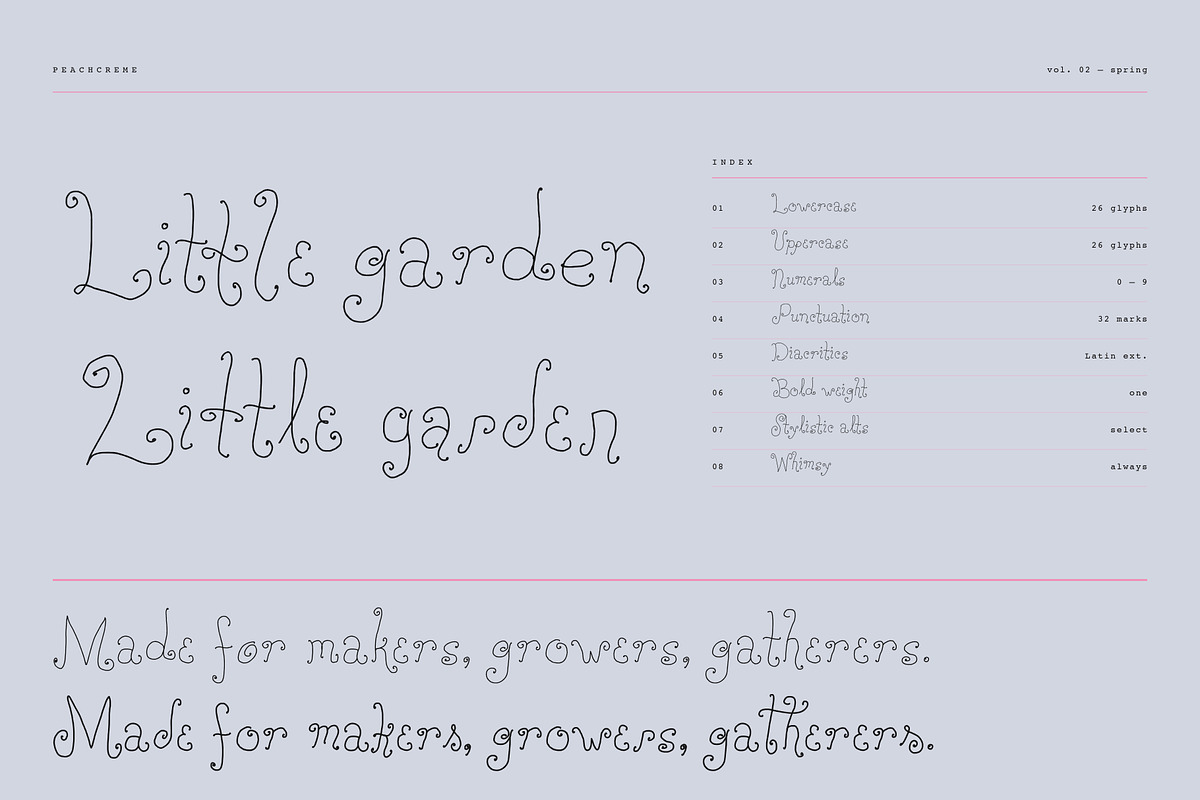 PEACHCREME
vol. 02 — spring
Little garden
Little garden
INDEX
01 Lowercase 26 glyphs
02 Uppercase 26 glyphs
03 Numerals 0 — 9
04 Punctuation 32 marks
05 Diacritics Latin ext.
06 Bold weight one
07 Stylistic alts select
08 Whimsy always
Made for makers, growers, gatherers.
Made for makers, growers, gatherers.